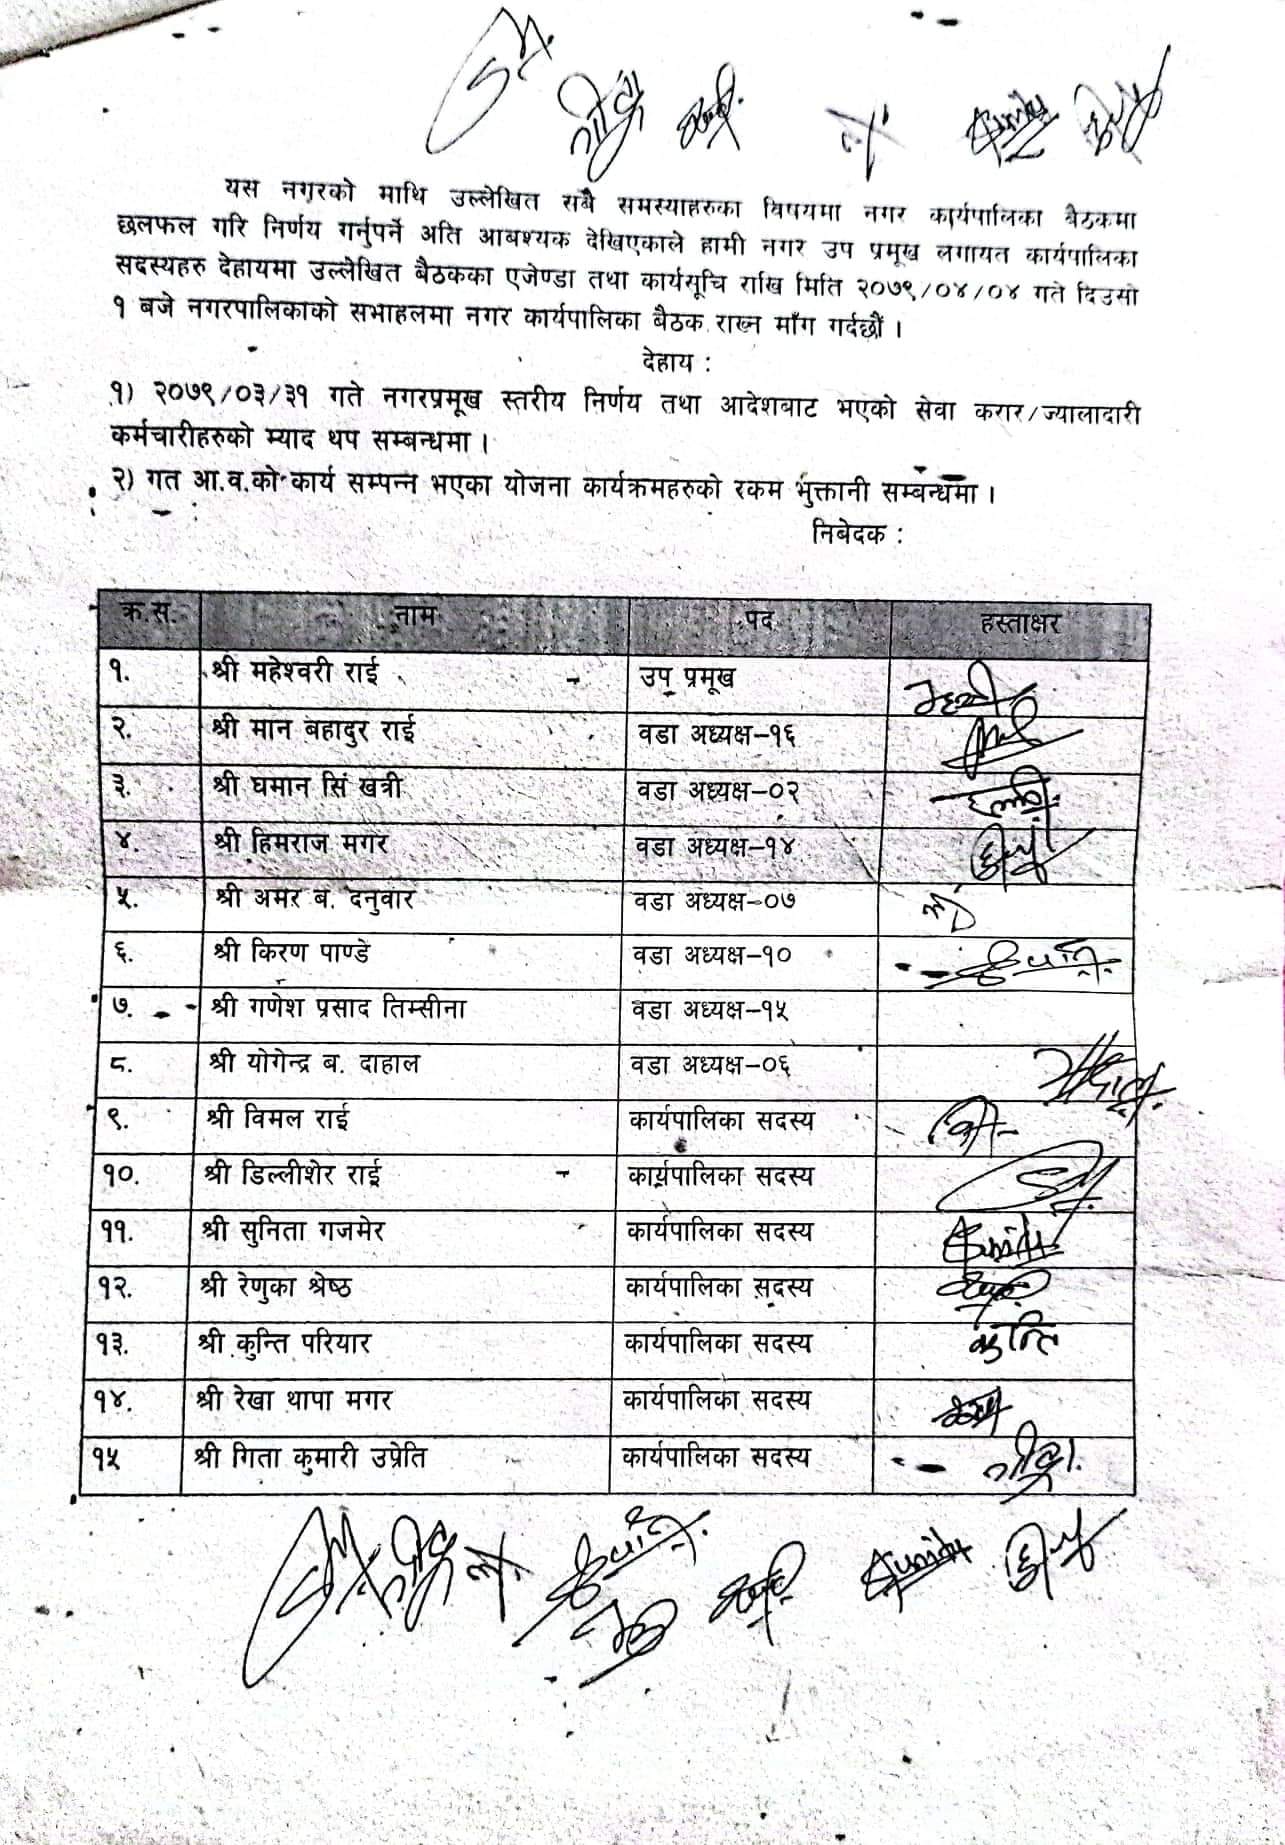 यस नगरको माथि उल्लेखित सबै समस्याहरुका विषयमा नगर कार्यपालिका बैठकमा
छलफल गरि निर्णय गर्नुपर्ने अति आबश्यक देखिएकाले हामी नगर उप प्रमुख लगायत कार्यपालिका
सदस्यहरु देहायमा उल्लेखित बैठकका एजेण्डा तथा कार्यसूचि राखि मिति २०७९/०४/०४ गते दिउसो
१ बजे नगरपालिकाको सभाहलमा नगर कार्यपालिका बैठक राख्न माँग गर्दछौं ।
देहाय :
१) २०७९/०३/३१ गते नगरप्रमूख स्तरीय निर्णय तथा आदेशबाट भएको सेवा करार/ज्यालादारी
कर्मचारीहरुको म्याद थप सम्बन्धमा ।
२) गत आ.व.को कार्य सम्पन्न भएका योजना कार्यक्रमहरुको रकम भुक्तानी सम्बन्धमा ।
निबेदक :
क्र.स. नाम पद हस्ताक्षर
१. श्री महेश्वरी राई उप प्रमूख
२. श्री मान बहादुर राई वडा अध्यक्ष-१६
३. श्री घमान सिं खत्री वडा अध्यक्ष-०२
४. श्री हिमराज मगर वडा अध्यक्ष-१४
५. श्री अमर ब. दनुवार वडा अध्यक्ष-०७
६. श्री किरण पाण्डे वडा अध्यक्ष-१०
७. श्री गणेश प्रसाद तिम्सीना वडा अध्यक्ष-१५
८. श्री योगेन्द्र ब. दाहाल वडा अध्यक्ष-०६
९. श्री विमल राई कार्यपालिका सदस्य
१०. श्री डिल्लीशेर राई कार्यपालिका सदस्य
११. श्री सुनिता गजमेर कार्यपालिका सदस्य
१२. श्री रेणुका श्रेष्ठ कार्यपालिका सदस्य
१३. श्री कुन्ति परियार कार्यपालिका सदस्य कुन्ति
१४. श्री रेखा थापा मगर कार्यपालिका सदस्य
१५ श्री गिता कुमारी उप्रेति कार्यपालिका सदस्य